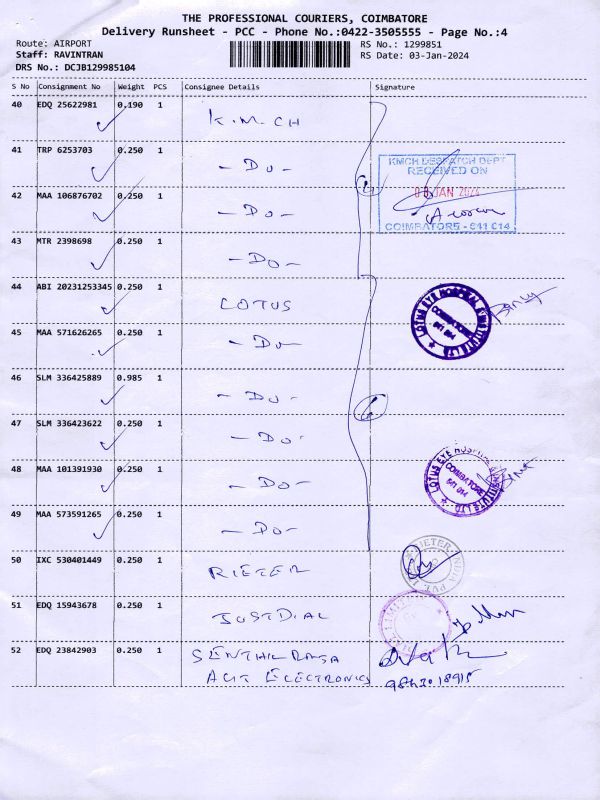 THE PROFESSIONAL COURIERS, COIMBATORE
Delivery Runsheet - PCC - Phone No.:0422-3505555 - Page No.:4
Route: AIRPORT
RS No.: 1299851
Staff: RAVINTRAN
RS Date: 03-Jan-2024
DRS No.: DCJB129985104
S No Consignment No Weight PCS Consignee Details Signature
40 EDQ 25622981 0.190 1 K.M.CH
41 TRP 6253703 0.250 1 - Do -
KMCH DESPATCH DEPT
RECEIVED ON
42 MAA 106876702 0.250 1 - Do -
JAN 2024
COIMBATORE - 641 014
43 MTR 2398698 0.250 1 - Do -
44 ABI 20231253345 0.250 1 LOTUS
LOTUS EYE HOSPITAL & INSTITUTE LTD
COIMBATORE
641 014
45 MAA 571626265 0.250 1 - Do -
46 SLM 336425889 0.985 1 - Do -
47 SLM 336423622 0.250 1 - Do -
48 MAA 101391930 0.250 1 - Do -
LOTUS EYE HOSPITAL & INSTITUTE LTD
COIMBATORE
641 014
49 MAA 573591265 0.250 1 - Do -
50 IXC 530401449 0.250 1 RIETER
RIETER INDIA PVT. L
51 EDQ 15943678 0.250 1 JUSTDIAL
52 EDQ 23842903 0.250 1 SENTHIL RAJA
ELECTRONICS